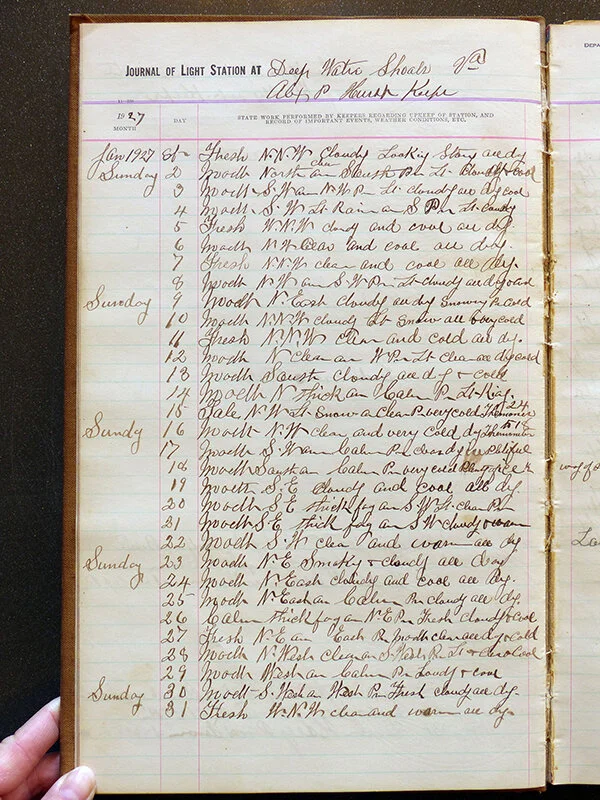 DEPA
JOURNAL OF LIGHT STATION AT Deep Water Shoals Va
Alex P Hurst Keeper
1927
MONTH DAY STATE WORK PERFORMED BY KEEPERS REGARDING UPKEEP OF STATION, AND
RECORD OF IMPORTANT EVENTS, WEATHER CONDITIONS, ETC.
Jan 1927 Fresh N.N.W Cloudy Looking all dy
Sunday 2 Modth North an Pm Lt cloudy & cool
3 Modth S.W an N.W Pm Lt cloudy all dy cool
4 Modth S.W Lt Rain an S Pm Lt cloudy
5 Fresh W.N.W cloudy and cool all dy.
6 Modth N.W clear and cool all dy.
7 Fresh N.N.W clear and cool all dy.
8 Modth N.W an S.W Pm Lt cloudy all dy cold
Sunday 9 Modth N.East cloudy all dy Snowing Pm cold
10 Modth N.N.W cloudy Lt Snow all cold
11 Fresh N.N.W clear and cold all dy.
12 Modth N clear an W Pm Lt clear all dy cold
13 Modth cloudy all dy & cold
14 Modth N thick an Calm Pm Lt
15 Gale N.W Lt Snow a clear P very cold 24
Sundy 16 Modth N.W clear and very cold dy 18
17 Modth S.W an Calm Pm
18 Modth an Calm Pm very
19 Modth S.E cloudy and cool all dy.
20 Modth S.E thick fog an S.W Lt clear Pm
21 Modth S.E thick fog an S.W cloudy & warm
22 Modth S.W clear and warm all dy
Sunday 23 Modth N.E Smoky & cloudy all day
24 Modth N.East cloudy and cool all dy.
25 Modth N.East an Calm Pm cloudy all dy
26 Calm thick fog an N.E Pm Fresh cloudy & cool
27 Fresh N.E an East Pm Modth clear all dy & cold
28 Modth N.West clear an S.West Pm Lt & cool
29 Modth West an Calm Pm & cool
Sunday 30 Modth S.West an West Pm Fresh cloudy all dy.
31 Fresh W.N.W clear and warm all dy.